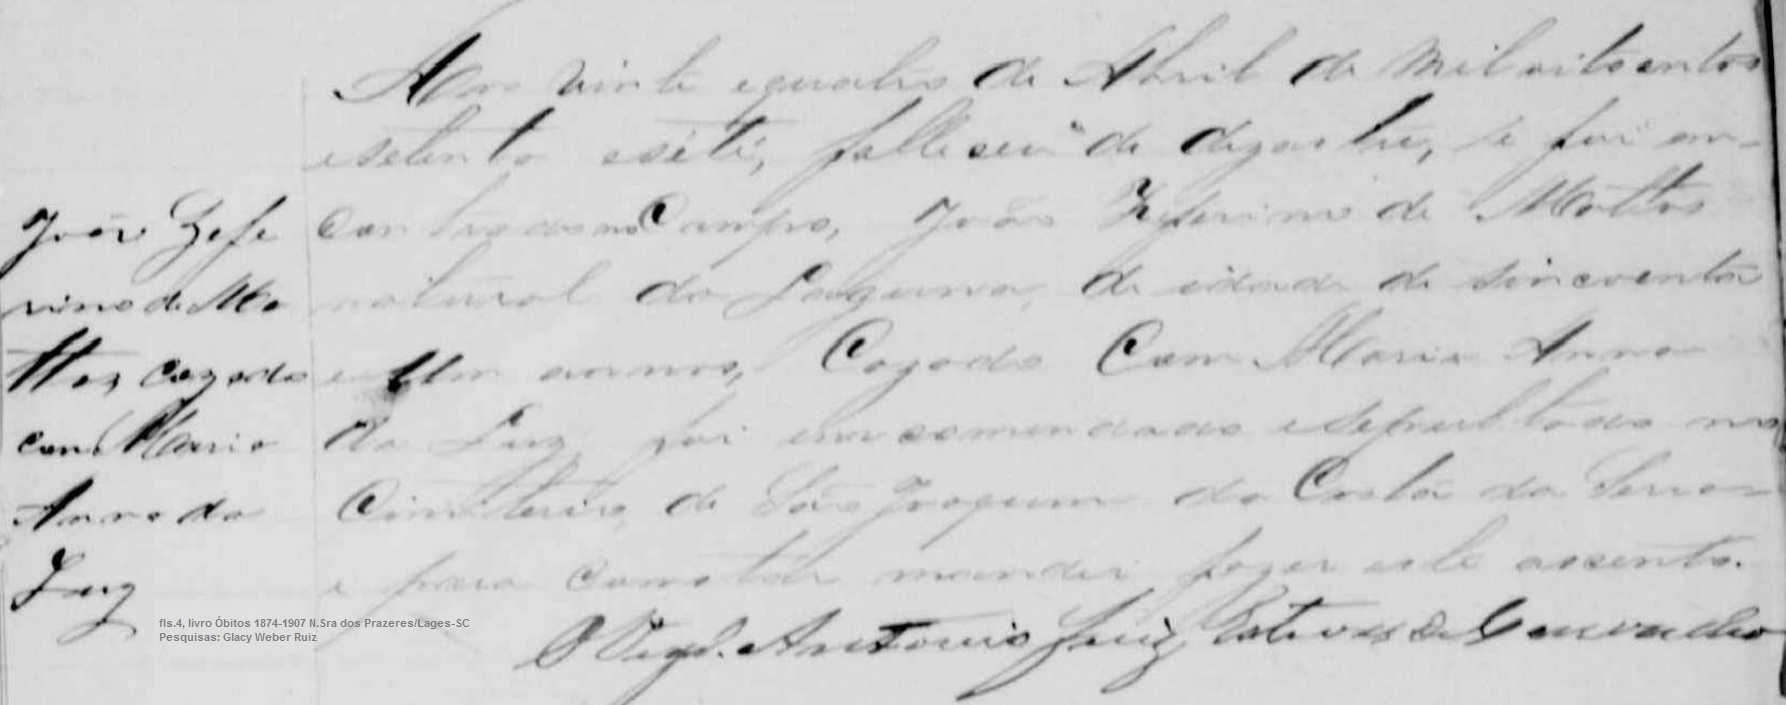 João Zefe
rino de Ma
ttos, Cazado
com Maria
Anna da
Luz
Aos vinte equatro de Abril de mil oitosentos
esetenta esete, falleseu de dezastre, e foi en-
contrado no Campo, João Zeferino de Mattos
natural da Laguna, de idade de sincoenta
e um annos, Cazado Com Maria Anna
da Luz, foi emcomendado esepultado no
Cimiterio, de São Joaquim da Costa da Serra
e para constar mandei fazer este assento.
O Vigº. Antonio Luiz Esteves de Carvalho
fls.4, livro Óbitos 1874-1907 N.Sra dos Prazeres/Lages-SC
Pesquisas: Glacy Weber Ruiz